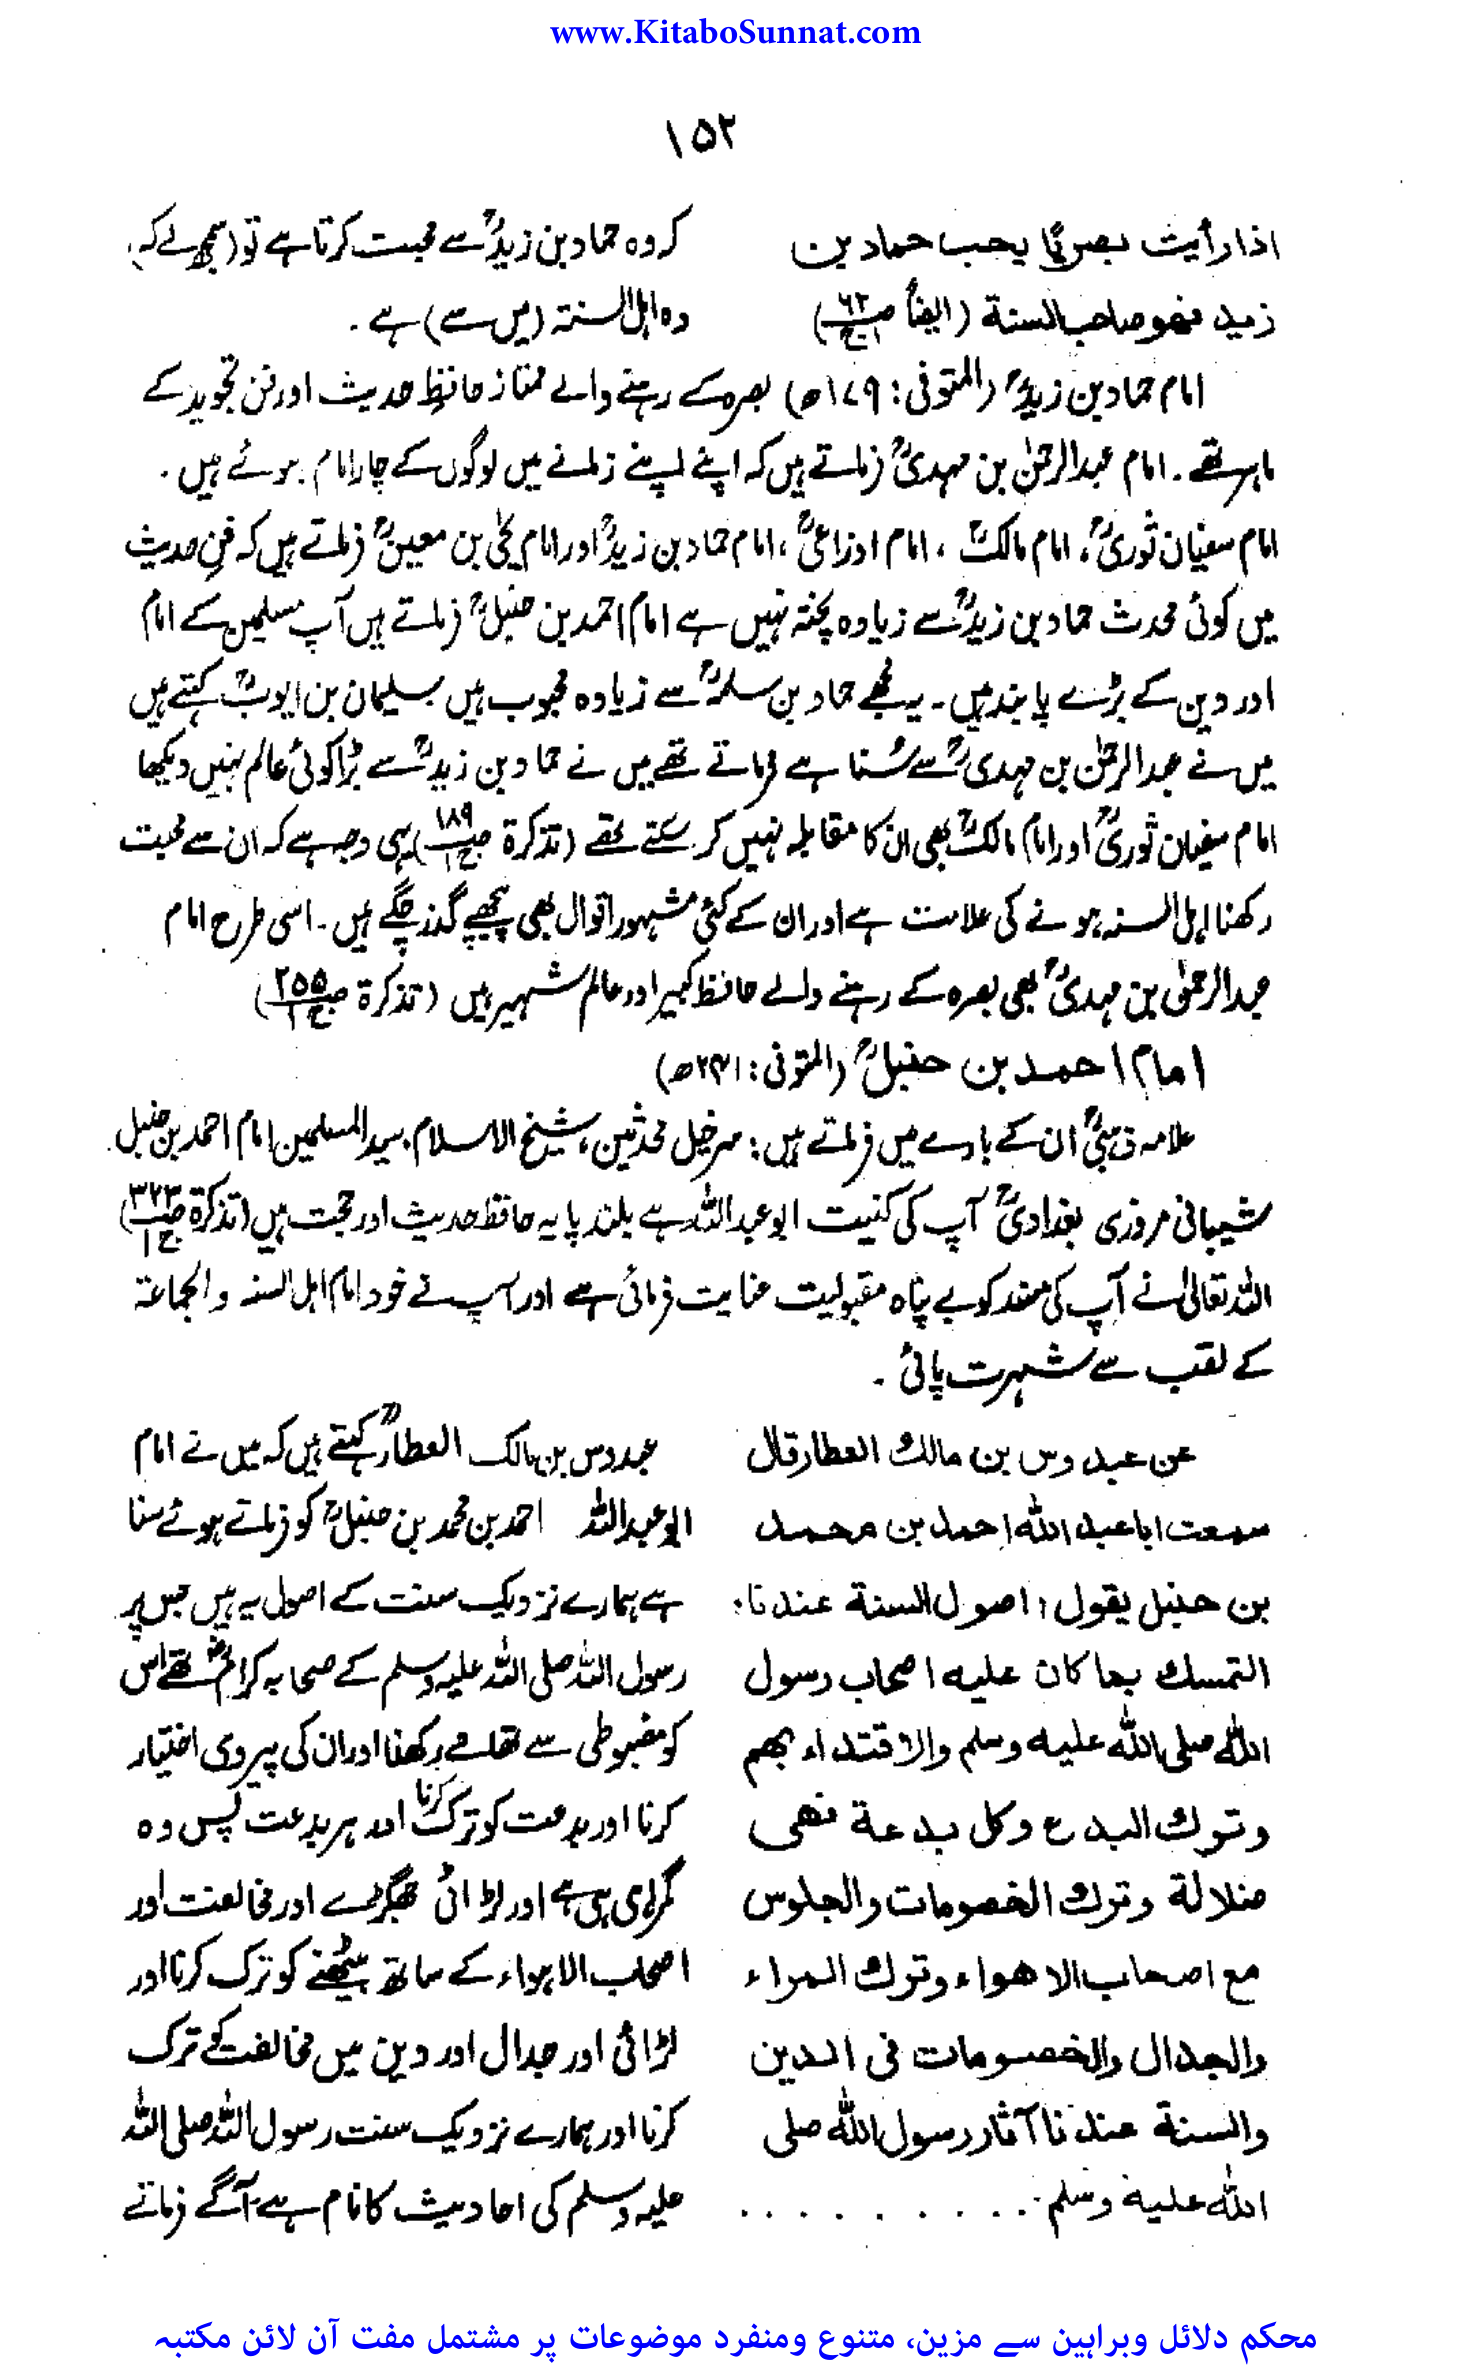 www.KitaboSunnat.com
۱۵۲
اذا رأیت بصریًا یحب حماد بن
زید فھو صاحب السنة (ایضاً ص۶۲ ج۱)
کہ وہ حماد بن زیدؒ سے محبت کرتا ہے تو (سمجھ لے کہ)
وہ اہل السنتہ (میں سے) ہے ۔
امام حماد بن زیدؒ (المتوفی: ۱۷۹ھ) بصرہ کے رہنے والے ممتاز حافظِ حدیث اور فن تجوید کے
ماہر تھے ۔ امام عبدالرحمٰن بن مہدیؒ فرماتے ہیں کہ اپنے اپنے زمانے میں لوگوں کے چار امام ہوئے ہیں ۔
امام سفیان ثوریؒ، امام مالکؒ ، امام اوزاعیؒ ، امام حماد بن زیدؒ اور امام یحیٰی بن معینؒ فرماتے ہیں کہ فنِ حدیث
میں کوئی محدث حماد بن زیدؒ سے زیادہ پختہ نہیں ہے امام احمد بن حنبلؒ فرماتے ہیں آپ مسلمین کے امام
اور دین کے بڑے پابند ہیں ۔ یہ مجھے حماد بن سلمہؒ سے زیادہ محبوب ہیں سلیمان بن ایوبؒ کہتے ہیں
میں نے عبدالرحمٰن بن مہدیؒ سے سُنا ہے فرماتے تھے میں نے حماد بن زیدؒ سے بڑا کوئی عالم نہیں دیکھا
امام سفیان ثوریؒ اور امام مالکؒ بھی ان کا مقابلہ نہیں کر سکتے تھے (تذکرۃ ص۱۸۹ ج۱) یہی وجہ ہے کہ ان سے محبت
رکھنا اہل السنہ ہونے کی علامت ہے اور ان کے کئی مشہور اقوال بھی پیچھے گذر چکے ہیں ۔ اسی طرح امام
عبدالرحمٰن بن مہدیؒ بھی بصرہ کے رہنے والے حافظ کبیر اور عالم شہیر ہیں (تذکرۃ ص۲۵۵ ج۱)
امام احمد بن حنبلؒ (المتوفی: ۲۴۱ھ)
علامہ ذہبیؒ ان کے بارے میں فرماتے ہیں: سرخیل محدثین، شیخ الاسلام، سید المسلمین امام احمد بن حنبل
شیبانی مروزی بغدادیؒ آپ کی کنیت ابو عبداللہ ہے بلند پایہ حافظ حدیث اور حجت ہیں (تذکرۃ ص۳۲۳ ج۱)
اللہ تعالیٰ نے آپ کی مسند کو بے پناہ مقبولیت عنایت فرمائی ہے اور آپ نے خود امام اہل السنہ والجماعۃ
کے لقب سے شہرت پائی ۔
عن عبدوس بن مالك العطار قال
سمعت ابا عبد اللہ احمد بن محمد
بن حنبل یقول : اصول السنة عندنا :
التمسك بما کان علیه اصحاب رسول
اللہ صلی اللہ علیه وسلم والاقتداء بهم
وترك البدع وکل بدعة فھی
ضلالة وترك الخصومات والجلوس
مع اصحاب الاھواء وترك المراء
والجدال والخصومات فی الدین
والسنة عندنا آثار رسول اللہ صلی
اللہ علیه وسلم . . . . . . . . . .
عبدوس بن مالک العطارؒ کہتے ہیں کہ میں نے امام
ابو عبداللہ احمد بن محمد بن حنبلؒ کو فرماتے ہوئے سنا
ہے ہمارے نزدیک سنت کے اصول یہ ہیں جس پر
رسول اللہ صلی اللہ علیہ وسلم کے صحابہ کرامؓ تھے اس
کو مضبوطی سے تھامے رکھنا اور ان کی پیروی اختیار
کرنا اور بدعت کو ترک کرنا اور ہر بدعت پس وہ
گمراہی ہی ہے اور لڑائی جھگڑے اور مخالفت اور
اصحاب الاہواء کے ساتھ بیٹھنے کو ترک کرنا اور
لڑائی اور جدال اور دین میں مخالفت کے ترک
کرنا اور ہمارے نزدیک سنت رسول اللہ صلی اللہ
علیہ وسلم کی احادیث کا نام ہے آگے فرماتے
محکم دلائل وبراہین سے مزین، متنوع ومنفرد موضوعات پر مشتمل مفت آن لائن مکتبہ